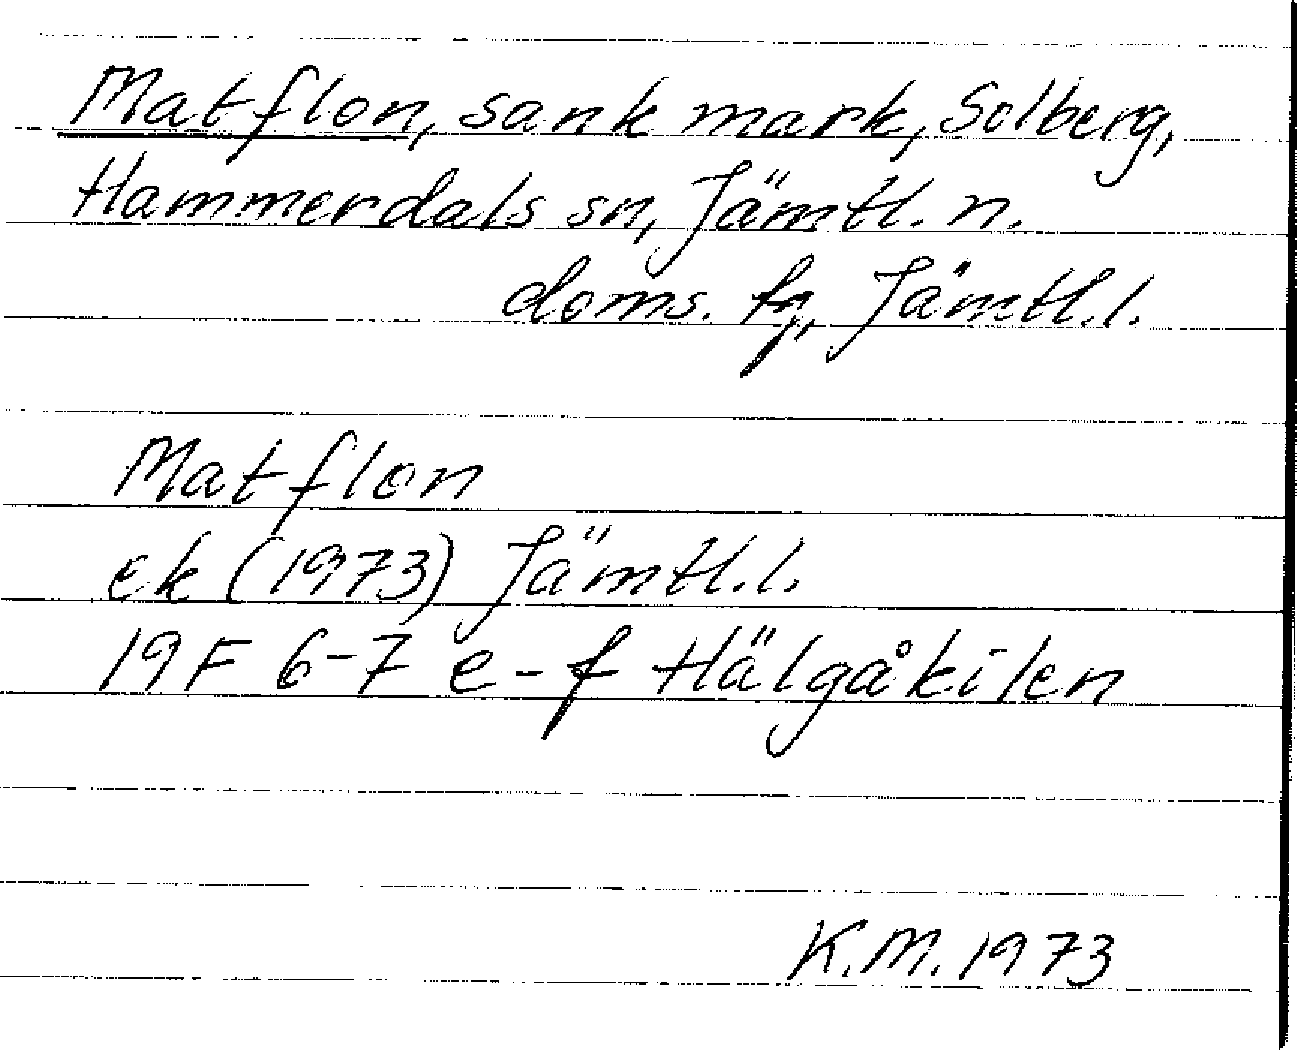 Matflon, sank mark, Solberg,
Hammerdals sn, Jämtl. n.
doms. fg, Jämtl. l.
Matflon
ek (1973) Jämtl. l.
19F 6-7 e-f Hälgåkilen
K.M. 1973